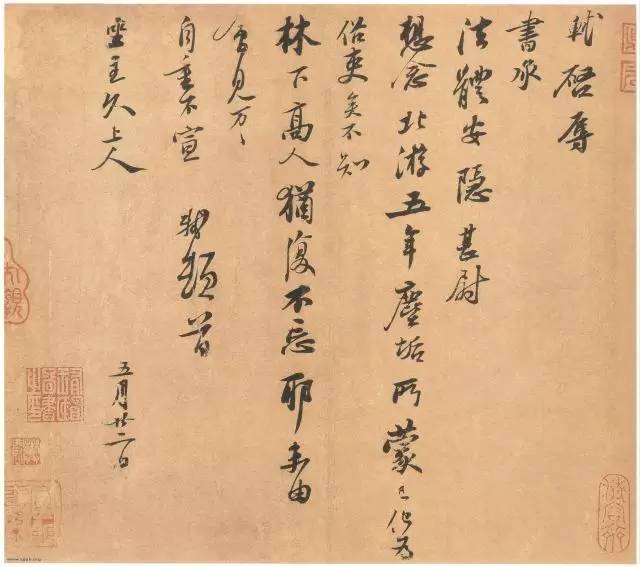 軾啓辱
書承
法體安隱甚慰
想念北游五年塵垢所蒙已化為
俗吏矣不知
林下高人猶復不忘耶未由
會見万万
自重不宣　軾頓首
坐主久上人
五月廿二日